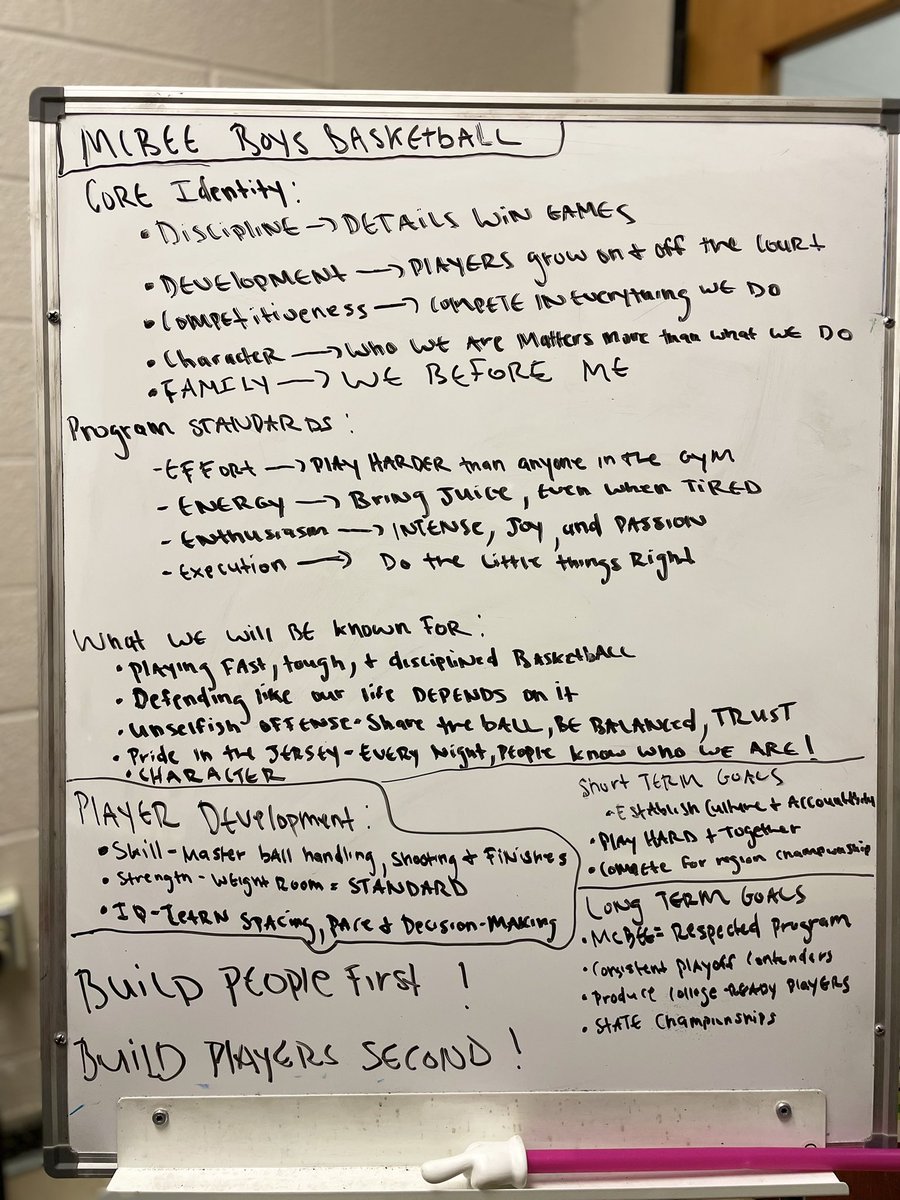 MCBEE BOYS BASKETBALL
CORE Identity:
• DISCIPLINE → DETAILS WIN GAMES
• DEVELOPMENT → PLAYERS grow on + off the Court
• COMPETITIVENESS → COMPETE IN Everything WE DO
• CHARACTER → WHO WE ARE Matters more than what WE DO
• FAMILY → WE BEFORE ME
Program STANDARDS:
- EFFORT → PLAY HARDER than anyone in the GYM
- ENERGY → Bring JUICE, Even when TIRED
- Enthusiasm → INTENSE, Joy, and PASSION
- Execution → Do the little things Right
What WE will BE known FOR:
• Playing FAST, tough, + disciplined BASKETBALL
• Defending like our life DEPENDS on it
• Unselfish OFFENSE - Share the BALL, BE BALANCED, TRUST
• Pride in the JERSEY - EVERY Night, People know who WE ARE!
• CHARACTER
PLAYER Development:
• Skill - Master ball handling, Shooting + Finishes
• Strength - Weight Room = STANDARD
• IQ - LEARN SPACING, PACE + Decision-MAKING
Short TERM GOALS
• Establish Culture + Accountability
• PLAY HARD + Together
• Compete for region championship
LONG TERM GOALS
• MCBEE = Respected Program
• Consistent Playoff Contenders
• Produce College-READY Players
• STATE Championships
BUILD PEOPLE First!
BUILD PLAYERS SECOND!